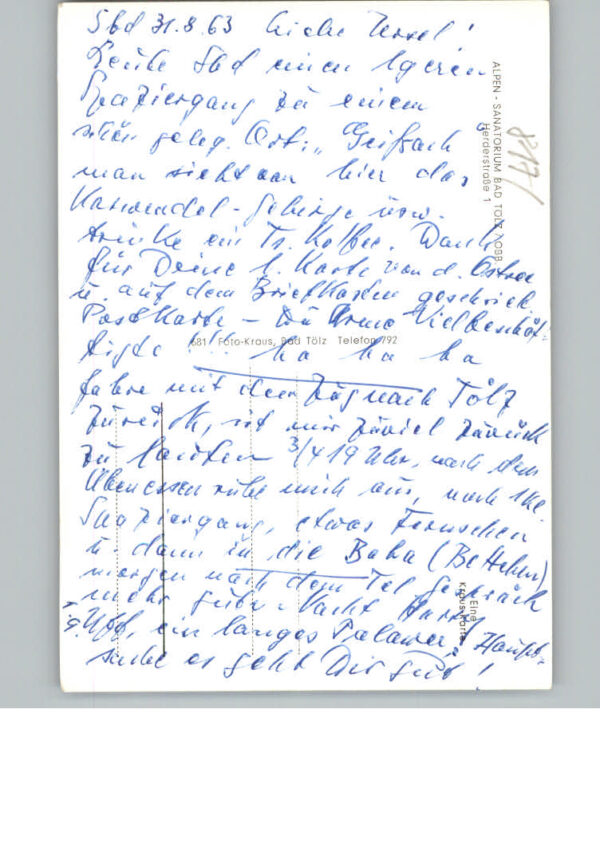 Sbd 31.8.63 Liebe Ursel!
Heute Sbd einen lgeren
Spaziergang zu einem
schön geleg. Ort: "Geißach
man sieht von hier das
Karwendel-Gebirge usw.
trinke ein Ts. Kaffee. Dank
für Deine l. Karte von d. Ostsee
u. auf dem Briefkasten geschrieb.
Postkarte – Du Arme Vielbeschäf-
tigte !!! ha ha ha
fahre mit dem Zug nach Tölz
zurück, ist mir zuviel zurück
zu laufen 3/4 19 Uhr, nach dem
Abendessen ruhe mich aus, noch
Spaziergang, etwas Fernsehen
u. dann in die Baba (Bettchen)
morgen nach dem Tel. Gespräch
mehr gute Nacht
ein langes Palaver! Haupt-
sache es geht Dir gut!
ALPEN - SANATORIUM BAD TÖLZ / OBB.
Herderstraße 1
681 Foto-Kraus, Bad Tölz Telefon 792
Eine
Kraus-Karte